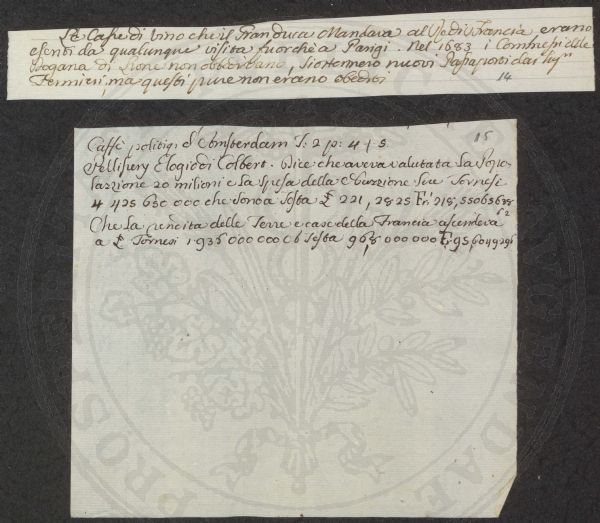 Le Casse di Vino che il Gran Duca Mandava al Re di Francia, erano
esenti da qualunque visita fuorchè a Parigi. Nel 1683 i Commessi della
Dogana di Lione non obbedivano, si ottennero nuovi Passaporti dai Sig.ri
Fermieri, ma questi pure non erano obediti
14
15
Caffè politiq: d'Amsterdam T: 2 p: 4 / 5
Pellissery Elogio di Colbert. Dice che aveva valutata la Popo-
lazzione 20 milioni e la spesa della nutrizione Lire Tornesi
4 425 630 000 che sono a Testa £ 221,2825
Che la rendita delle Terre e case della Francia ascendeva
a £ Tornesi 1936 000 000 a Testa 96,8 000 000
PROS